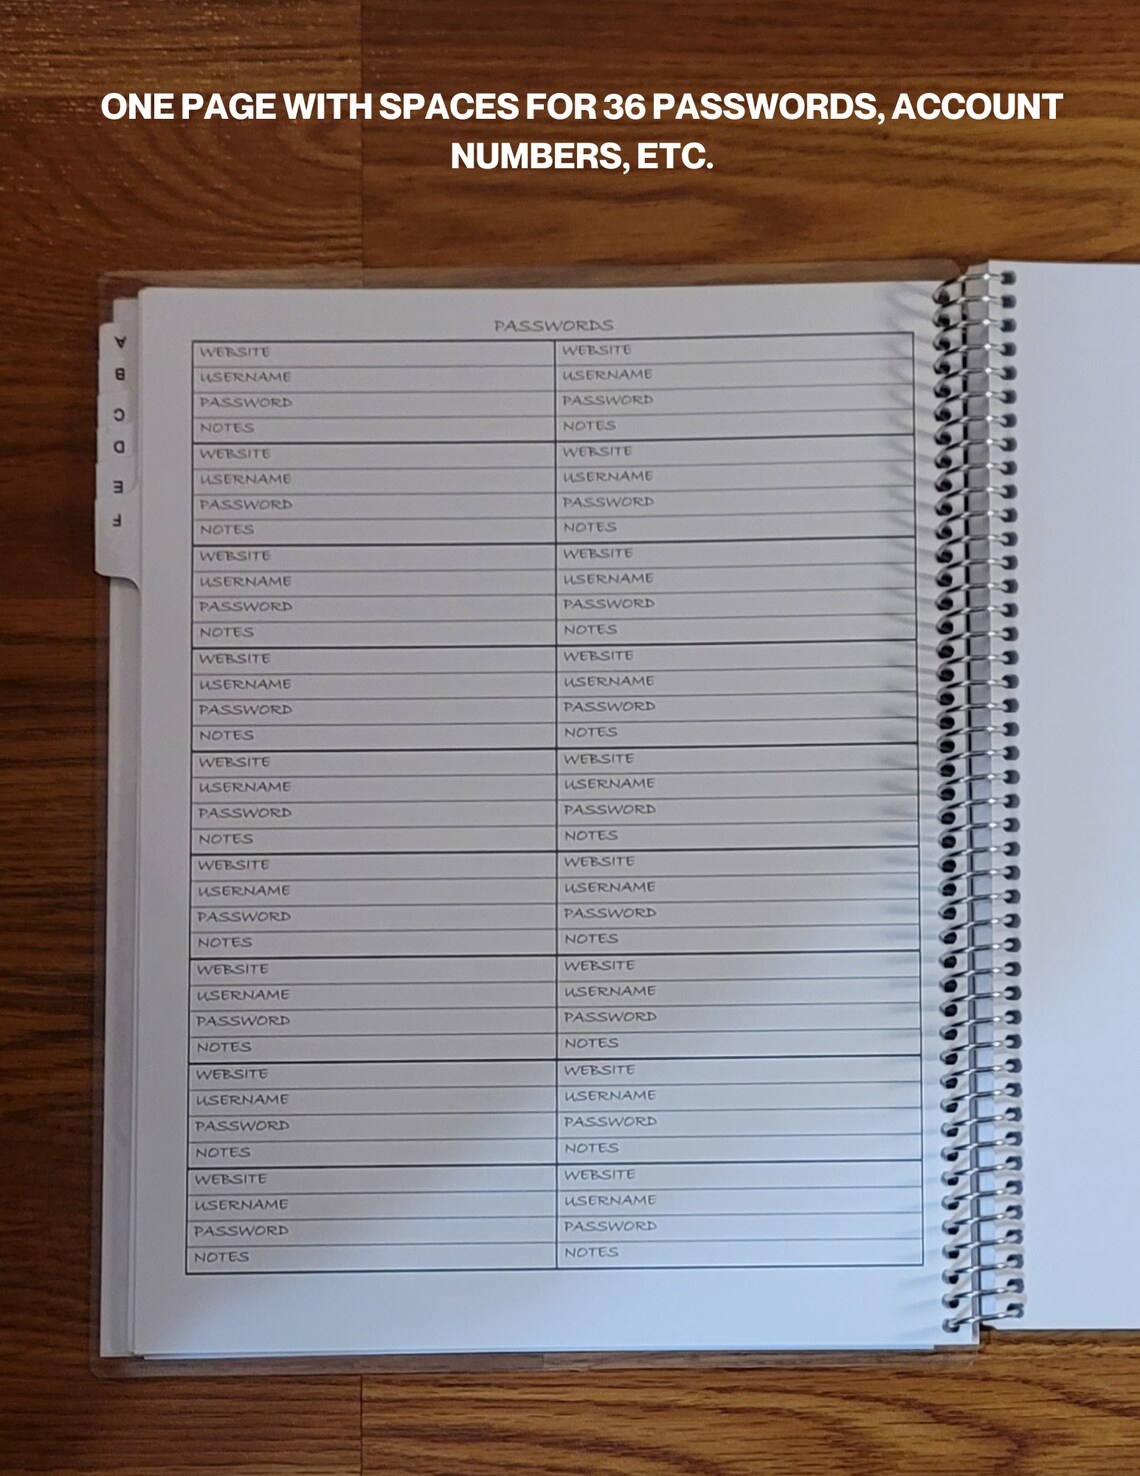 ONE PAGE WITH SPACES FOR 36 PASSWORDS, ACCOUNT
NUMBERS, ETC.
PASSWORDS
A
B
C
D
E
F
WEBSITE WEBSITE
USERNAME USERNAME
PASSWORD PASSWORD
NOTES NOTES
WEBSITE WEBSITE
USERNAME USERNAME
PASSWORD PASSWORD
NOTES NOTES
WEBSITE WEBSITE
USERNAME USERNAME
PASSWORD PASSWORD
NOTES NOTES
WEBSITE WEBSITE
USERNAME USERNAME
PASSWORD PASSWORD
NOTES NOTES
WEBSITE WEBSITE
USERNAME USERNAME
PASSWORD PASSWORD
NOTES NOTES
WEBSITE WEBSITE
USERNAME USERNAME
PASSWORD PASSWORD
NOTES NOTES
WEBSITE WEBSITE
USERNAME USERNAME
PASSWORD PASSWORD
NOTES NOTES
WEBSITE WEBSITE
USERNAME USERNAME
PASSWORD PASSWORD
NOTES NOTES
WEBSITE WEBSITE
USERNAME USERNAME
PASSWORD PASSWORD
NOTES NOTES